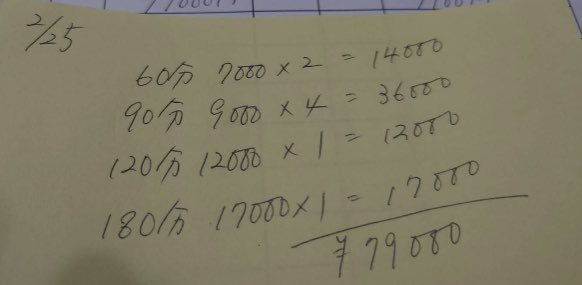 2/25
60分 7000×2=14000
90分 9000×4=36000
120分 12000×1=12000
180分 17000×1=17000
¥79000